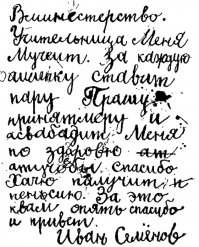 Вминестерство.
Учительница Меня
Мучеит. За каждую
ашипку ставит
пару Прашу
принятмеру и
асвабадит Меня
по здоровю ат
атучобы. спасибо
Хачю палучит
пеньсию. За это
квам опять спасибо
и привет.
Иван Семёнов